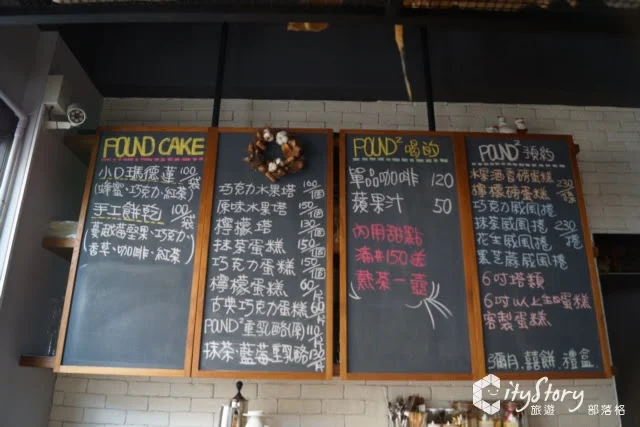 POUND CAKE
小D.瑪德蓮 100/袋
(蜂蜜、巧克力、紅茶)
手工餅乾 100/袋
(蔓越莓堅果、巧克力、
香草、咖啡、紅茶)
巧克力水果塔
原味水果塔 150/個
檸檬塔 130/個
抹茶蛋糕 150/個
巧克力蛋糕 150/個
檸檬蛋糕 60/片
古典巧克力蛋糕
POUND²重乳酪(原) 110/片
抹茶、藍莓重乳酪 130/片
POUND² 喝的
單品咖啡 120
蘋果汁 50
內用甜點
滿$150送
熱茶一壺
POUND² 預約
檸檬磅蛋糕 230/條
巧克力戚風捲
抹茶戚風捲 230/捲
花生戚風捲
黑芝麻戚風捲
6吋塔類
6吋以上蛋糕
客製蛋糕
彌月、囍餅、禮盒
CityStory
旅遊 部落格